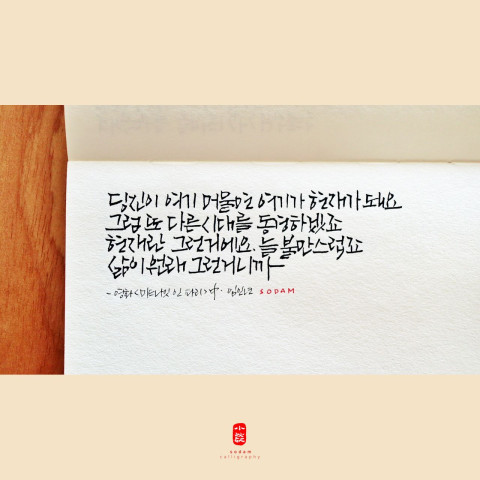 당신이 여기 머물면 여기가 현재가 돼요
그럼 또 다른 시대를 동경하겠죠
현재란 그런거에요. 늘 불만스럽죠
삶이 원래 그런거니까
- 영화 <미드나잇 인 파리> 中. SODAM
sodam
calligraphy